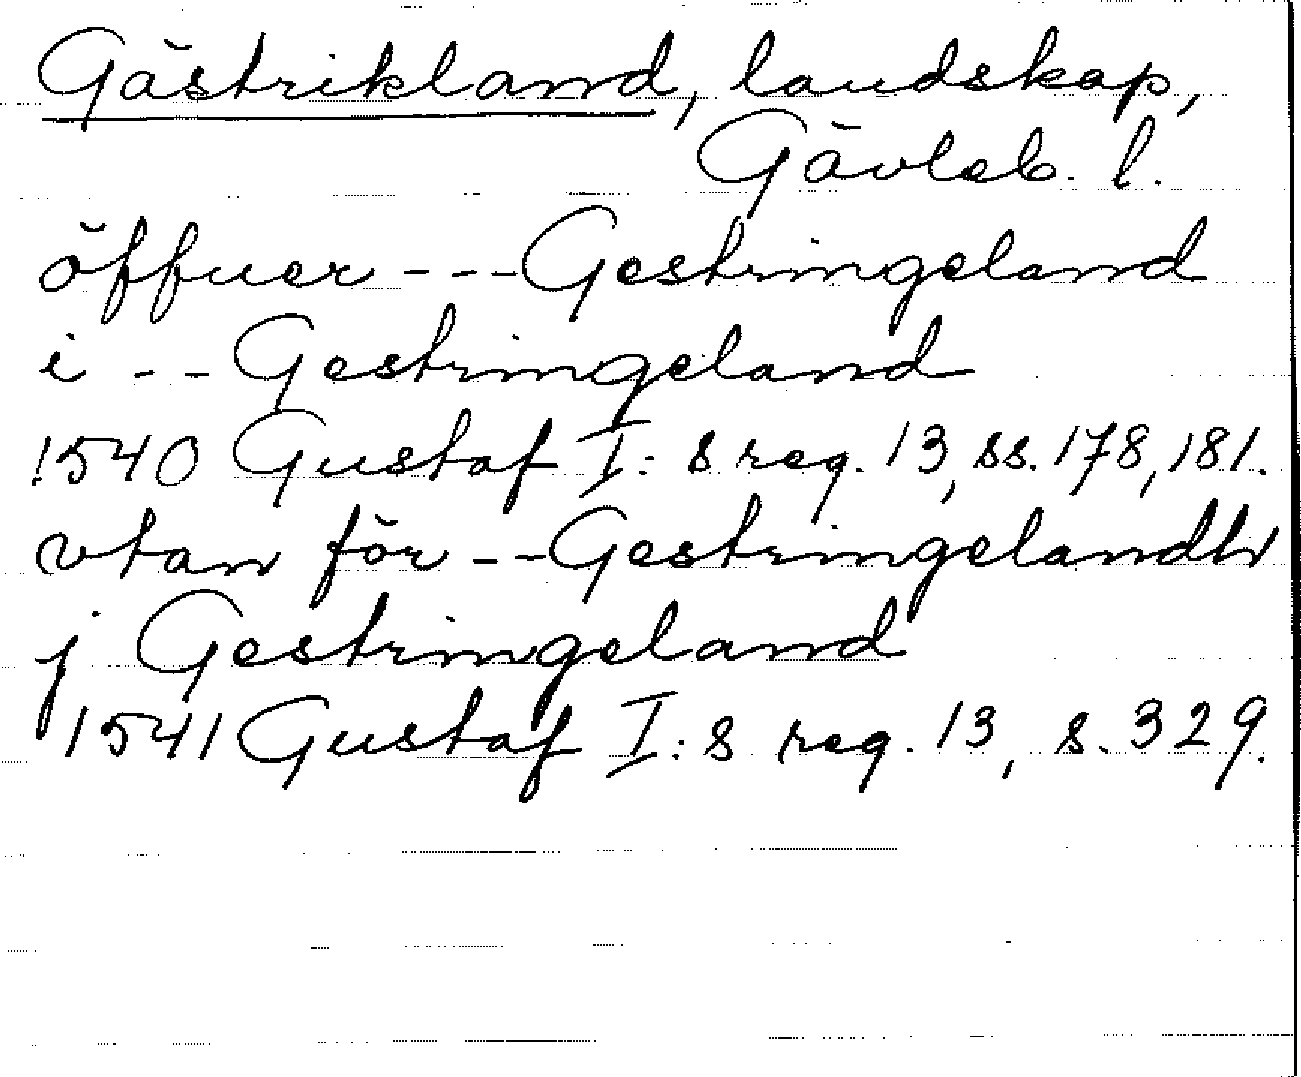 Gästrikland, landskap,
Gävleb. l.
öffuer --- Gestringeland
i -- Gestringeland
1540 Gustaf I:s reg. 13, ss. 178, 181.
vtan för -- Gestringelandh
j Gestringeland
1541 Gustaf I:s reg. 13, s. 329.